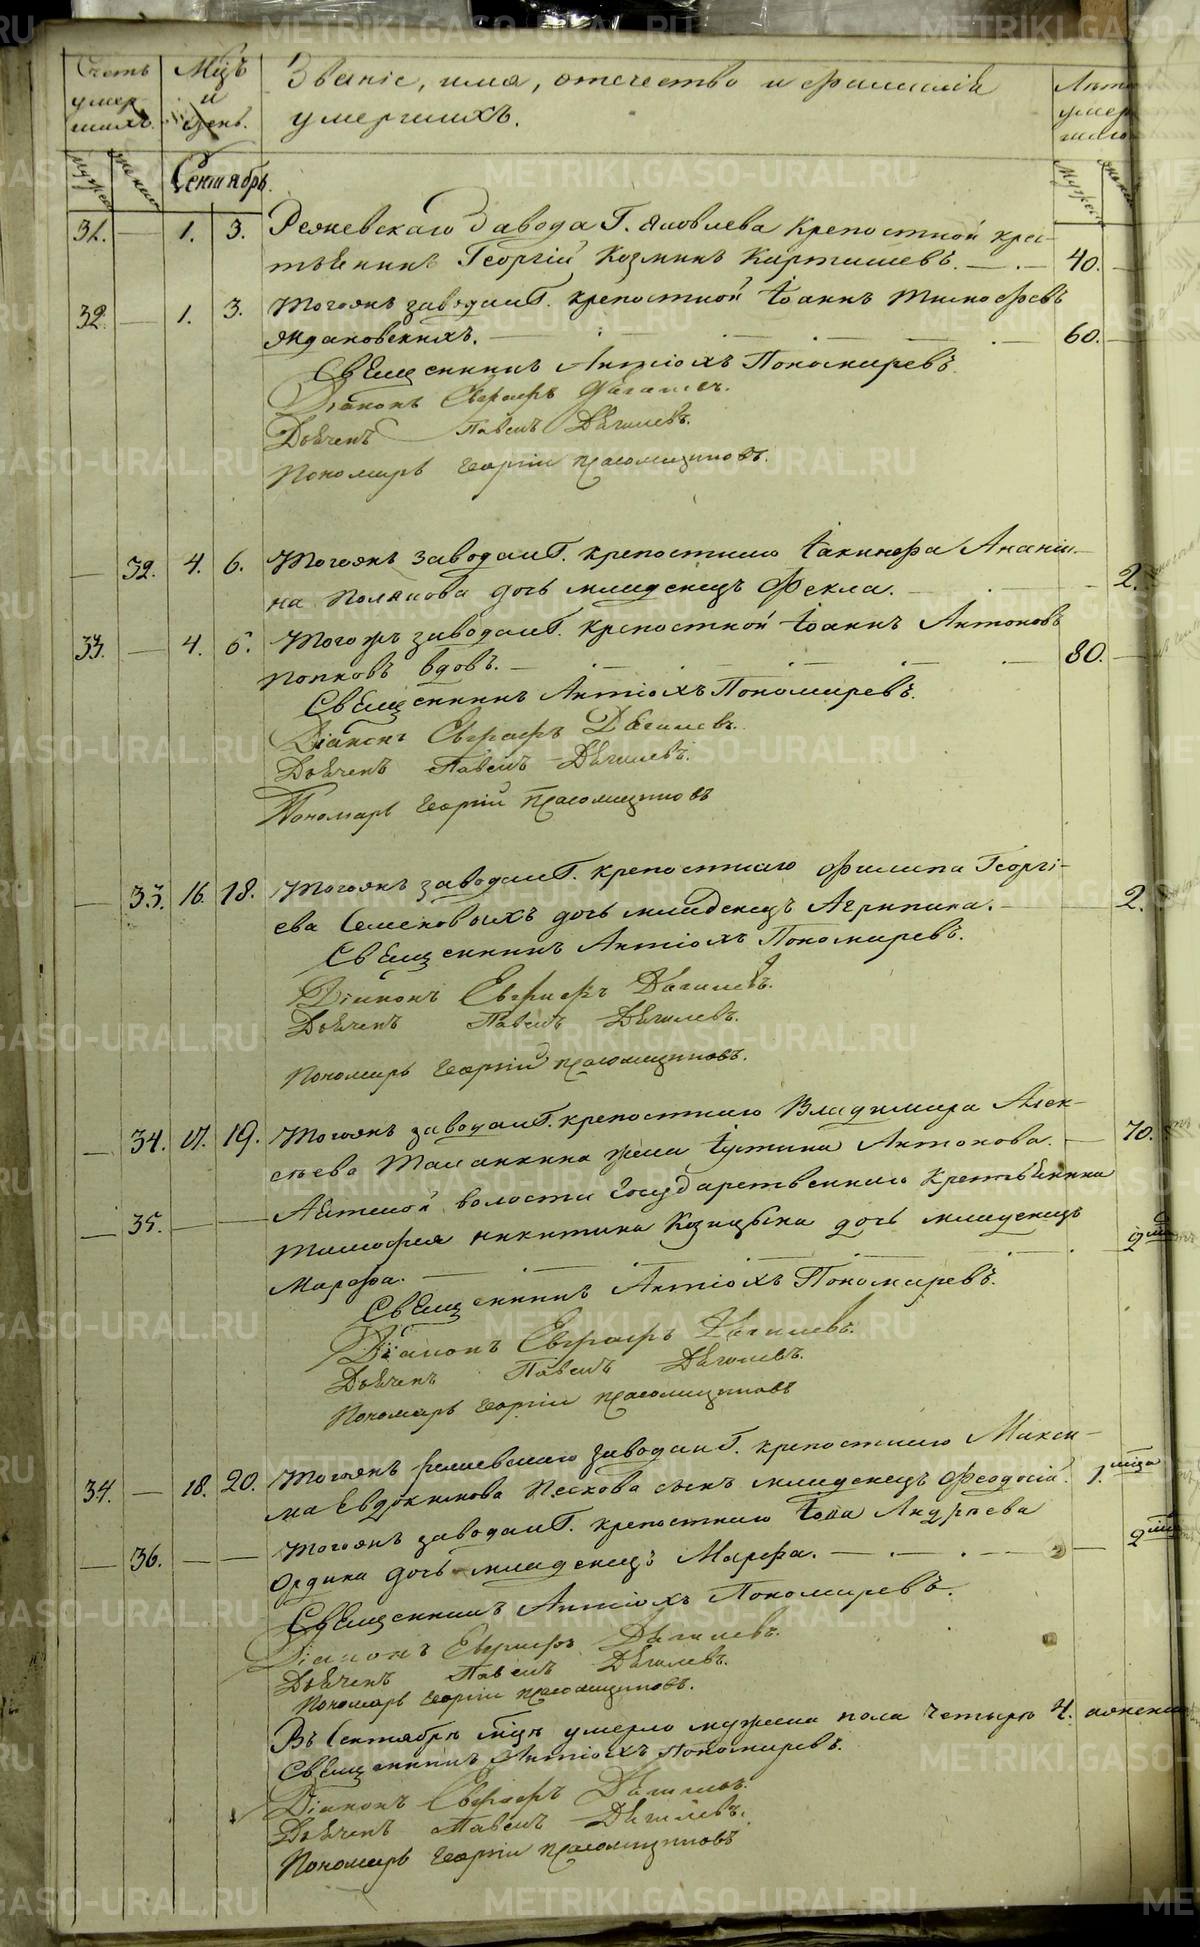 Счетъ умер-шихъ.
Мцъ и день.
Званіе, имя, отечество и фамилія
умершихъ.
Лѣта умер шаго
мужеска
женска
Сентябрь.
31. — 1. 3. Режевскаго Завода Г. Яковлева крепостной крес-
тьянинъ Георгій Козминъ Карташевъ. 40.
32. — 1. 3. Тогожъ завода Г. крепостной Іоаннъ Тимофеевъ
60.
Священникъ Антіохъ Пономаревъ.
Діаконъ Евграфъ
Дьячекъ Павелъ Дягилевъ.
Пономарь Георгій
— 32. 4. 6. Тогожъ завода Г. крепостнаго Іакинфа Анані-
на Полякова дочь младенецъ Фекла. 2.
33. — 4. 6. Тогожъ завода Г. крепостной Іоаннъ Антоновъ
Попковъ вдовъ. 80.
Священникъ Антіохъ Пономаревъ.
Діаконъ Евграфъ Дягилевъ.
Дьячекъ Павелъ Дягилевъ.
Пономарь Георгій
— 33. 16. 18. Тогожъ завода Г. крепостнаго Филипа Георгі-
ева дочь младенецъ Агрипина. 2.
Священникъ Антіохъ Пономаревъ.
Діаконъ Евграфъ Дягилевъ.
Дьячекъ Павелъ Дягилевъ.
Пономарь Георгій
— 34. 17. 19. Тогожъ завода Г. крепостнаго Владимира Алек-
сѣева жена Іустина Антонова. 70.
— 35. — — волости Государственнаго Крестьянина
Тимофея Никитина дочь младенецъ
Марфа.
Священникъ Антіохъ Пономаревъ.
Діаконъ Евграфъ Дягилевъ.
Дьячекъ Павелъ Дягилевъ.
Пономарь Георгій
34. — 18. 20. Тогожъ завода Г. крепостнаго Макси-
ма Евдокимова Пескова сынъ младенецъ Феодосій. 1. мца
— 36. — — Тогожъ завода Г. крепостнаго Іова Андреева
дочь младенецъ Марфа.
Священникъ Антіохъ Пономаревъ.
Діаконъ Евграфъ Дягилевъ.
Дьячекъ Павелъ Дягилевъ.
Пономарь Георгій
Въ Сентябрѣ мцѣ умерло мужеска пола четыре 4. а женска
Священникъ Антіохъ Пономаревъ.
Діаконъ Евграфъ Дягилевъ.
Дьячекъ Павелъ Дягилевъ.
Пономарь Георгій
METRIKI.GASO-URAL.RU